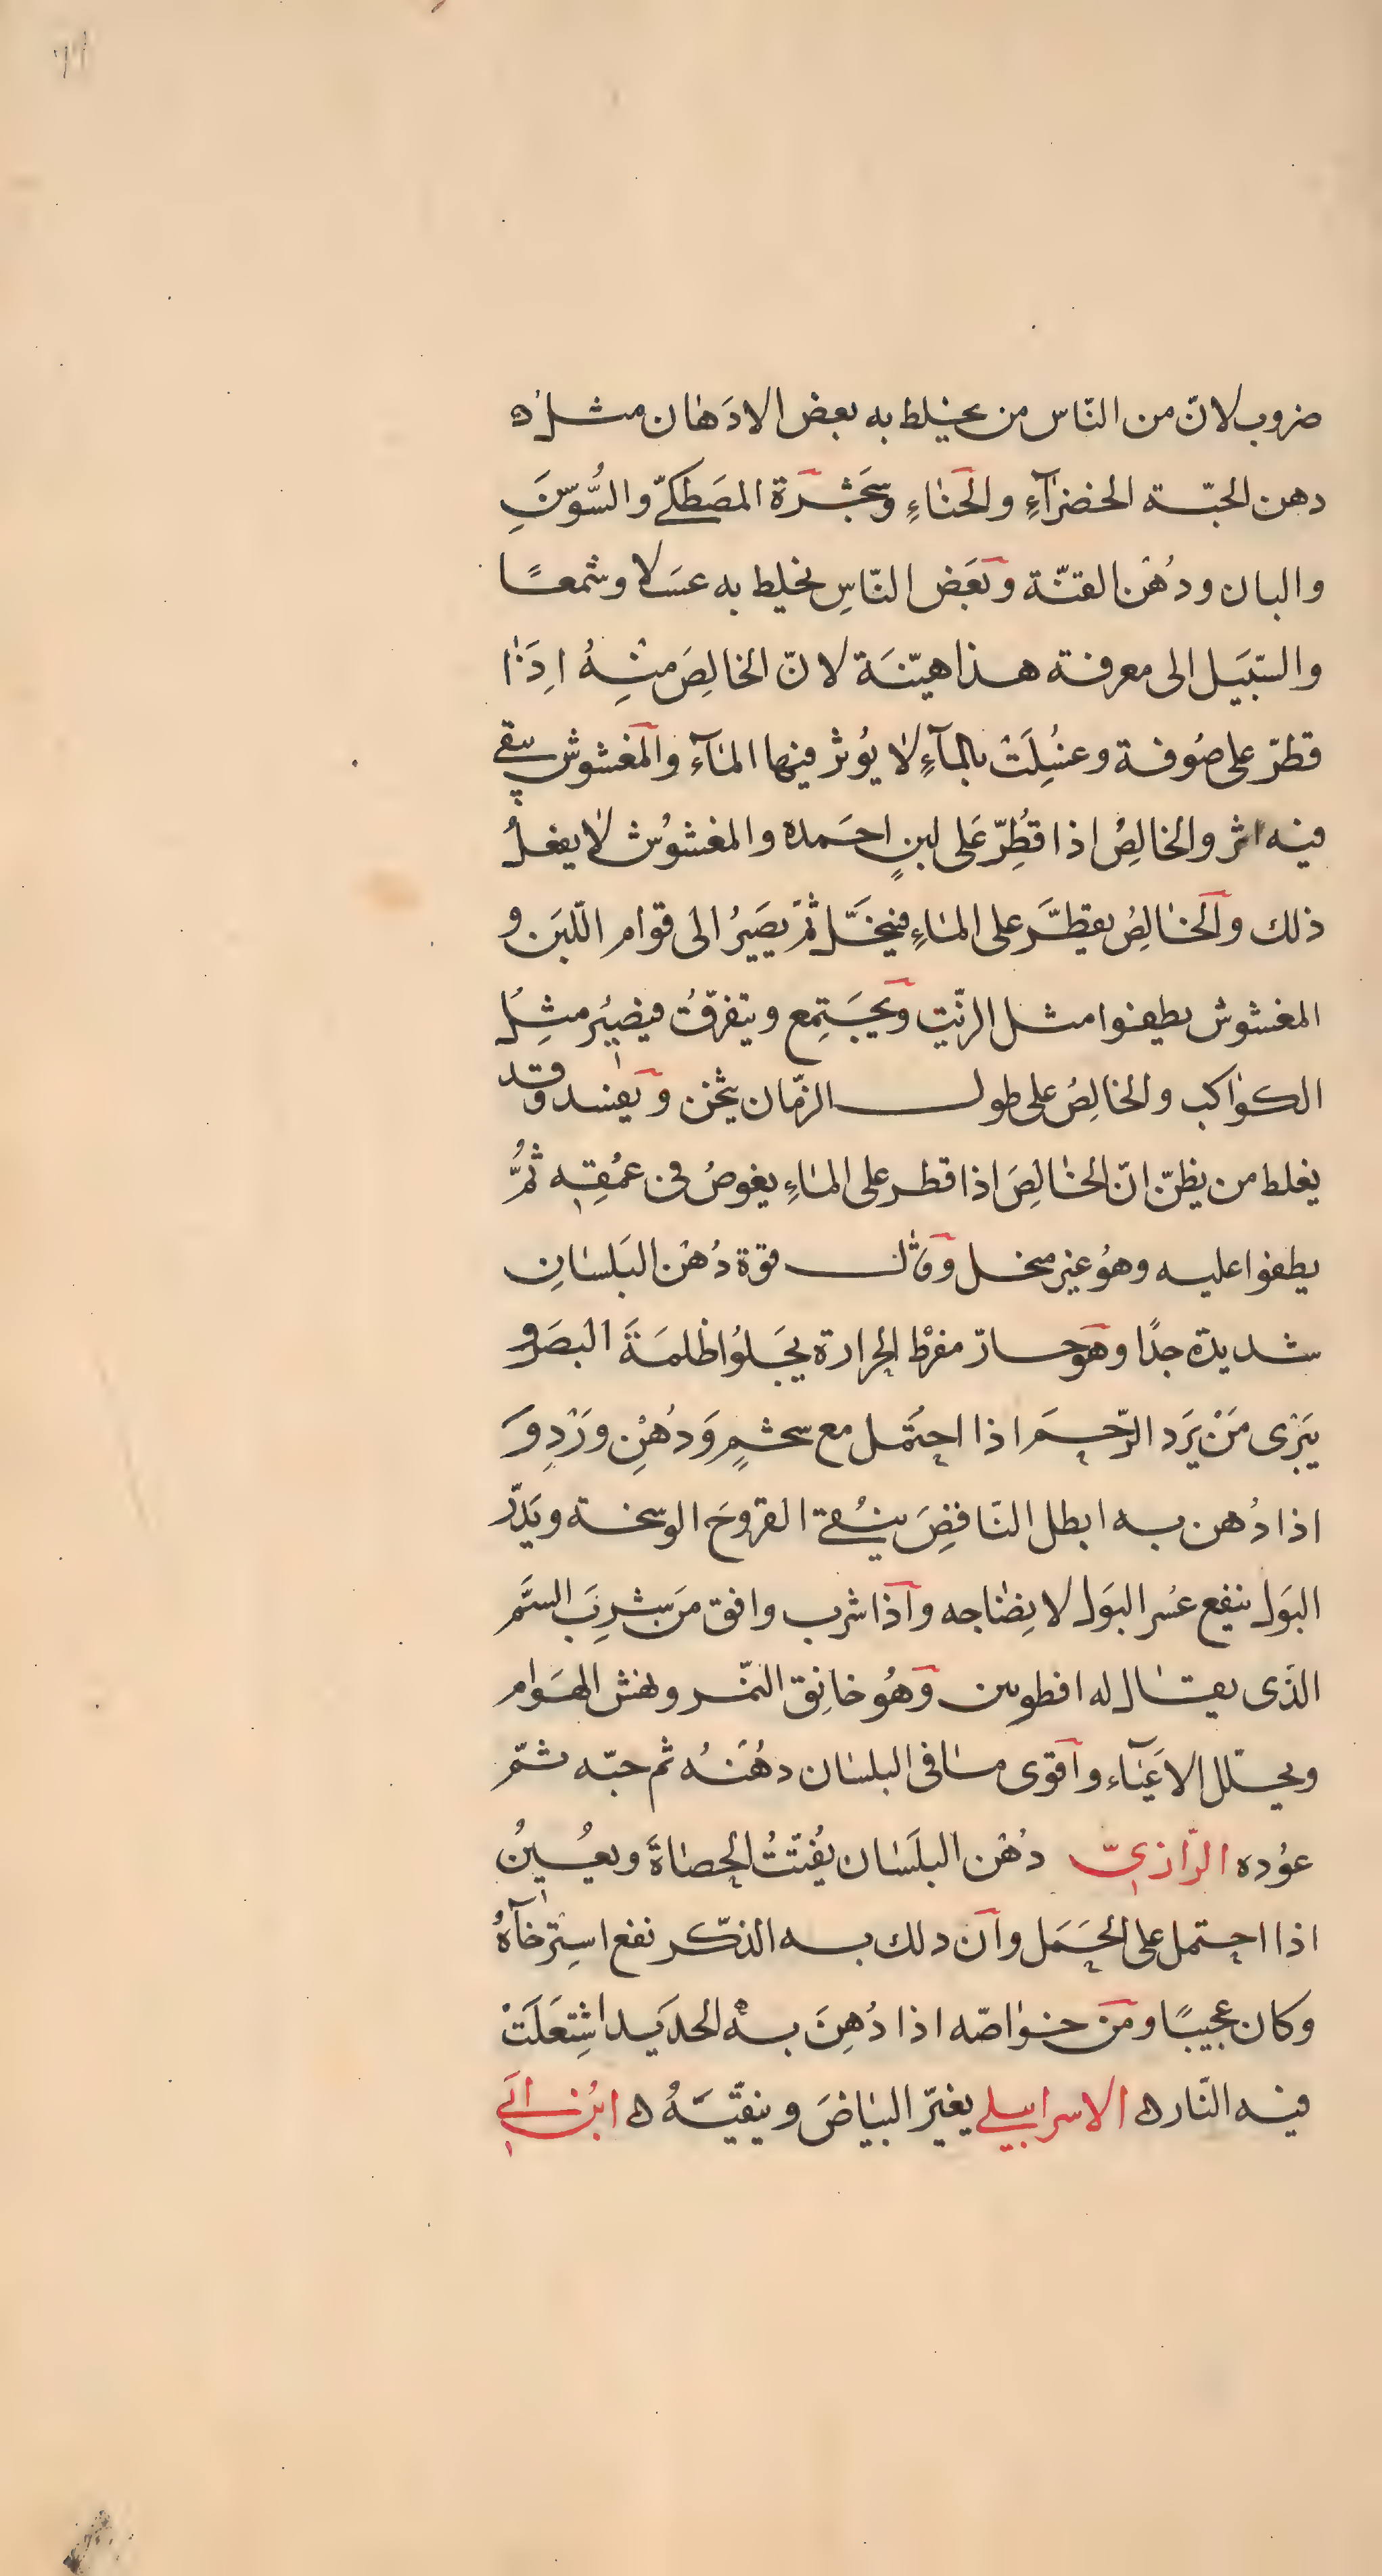 ضروب لانّ من النّاس من يخلط به بعض الادَهان مثل ه
دهن الحبّة الخضرَآءِ والحَناءِ وشجَرة المصَطكىّ والسُّوسَنِ
والبان ودُهْن القنّة وبعَض النّاسِ يخليط به عسَلا وشمعًا
والسّبيَل الى معرفة هذا هيّنَة لانّ الخالِصَ منْهُ اِذَا
قطرّ على صُوفة وغسُِلَتْ بالمآءِ لا يُوثر فيها المآءَ والمغَشوش يبقى
فيه اثر والخالِصُ اذا قُطِرّ عَلى لبنٍ احمَده والمغشوُش لا يفعلُ
ذلك والخالِصُ يقطَّر على الماءِ فينحَلّ ثمّ يصَيرُ الى قوام اللّبَن و
المغشوش يطفوا مثل الزّيت ويجَتمِع ويتفرّقُ فيصيُر مثِلُ
الكواكب والخالِصُ على طول الزّمان يثخن ويفسد وقد
يغلط من يظنّ انّ الخالِصَ اذا قطر على الماءِ يغوصُ فى عمُقِه ثمَُّ
يطفوا عليه وهوُ غير منحل وقال قوة دُهْن البَلسانِ
شديدة جدًا وهوَ حارّ مفرطْ الحرارة يجَلوُا ظلمَةَ البصَر و
يَبْرى مَنْ بَرَد الرّحِمَ اذا احتُمل مع شحمٍ وَدُهْنِ ورَدْ و
اذا دُهن به ابطل النّافِضَ ينُقى القروحَ الوسخة ويَدرّ
البَول ينفع عُسر البَول لاِنضاجه وآذا شرب وافق مَن شرِبَ السَّم
الذّى يقال له افطوىىن وَهُو خانِق النّمر ونهش الهوَام
ويحلّل الاعَيآء وآقوى ما فى البلسان دهُنهُ ثم حبّه ثمّ
عوُده الرّازىّ دُهْن البلَسَان يُفتّتُ الحصَاةَ ويعُينُ
اذا احتمل على الحَمَل وآن دلك به الذّكر نفع استِرخآهُ
وكان عجيبًا ومَن خواصّه اذا دُهِنَ بهْ الحدَيد اشتِعَلَتْ
فيه النّار ه الاسرايىلى يغيرّ البيَاضَ وينقّيَهُ ه ابُن ابَى